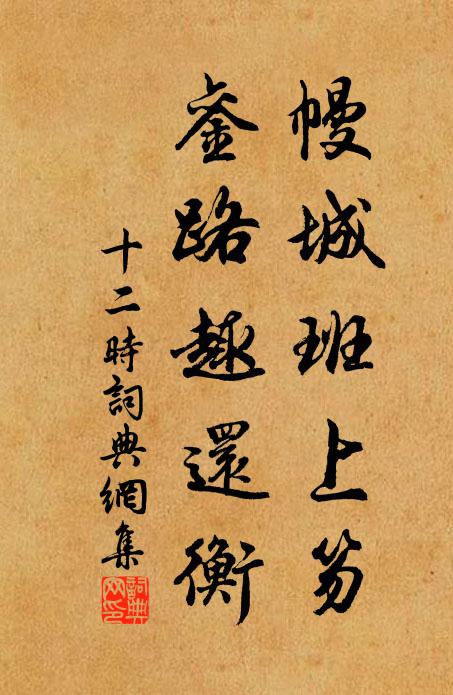 幔城班上笏
崟路趣還衡
十二時詞典網集
詞典
网印